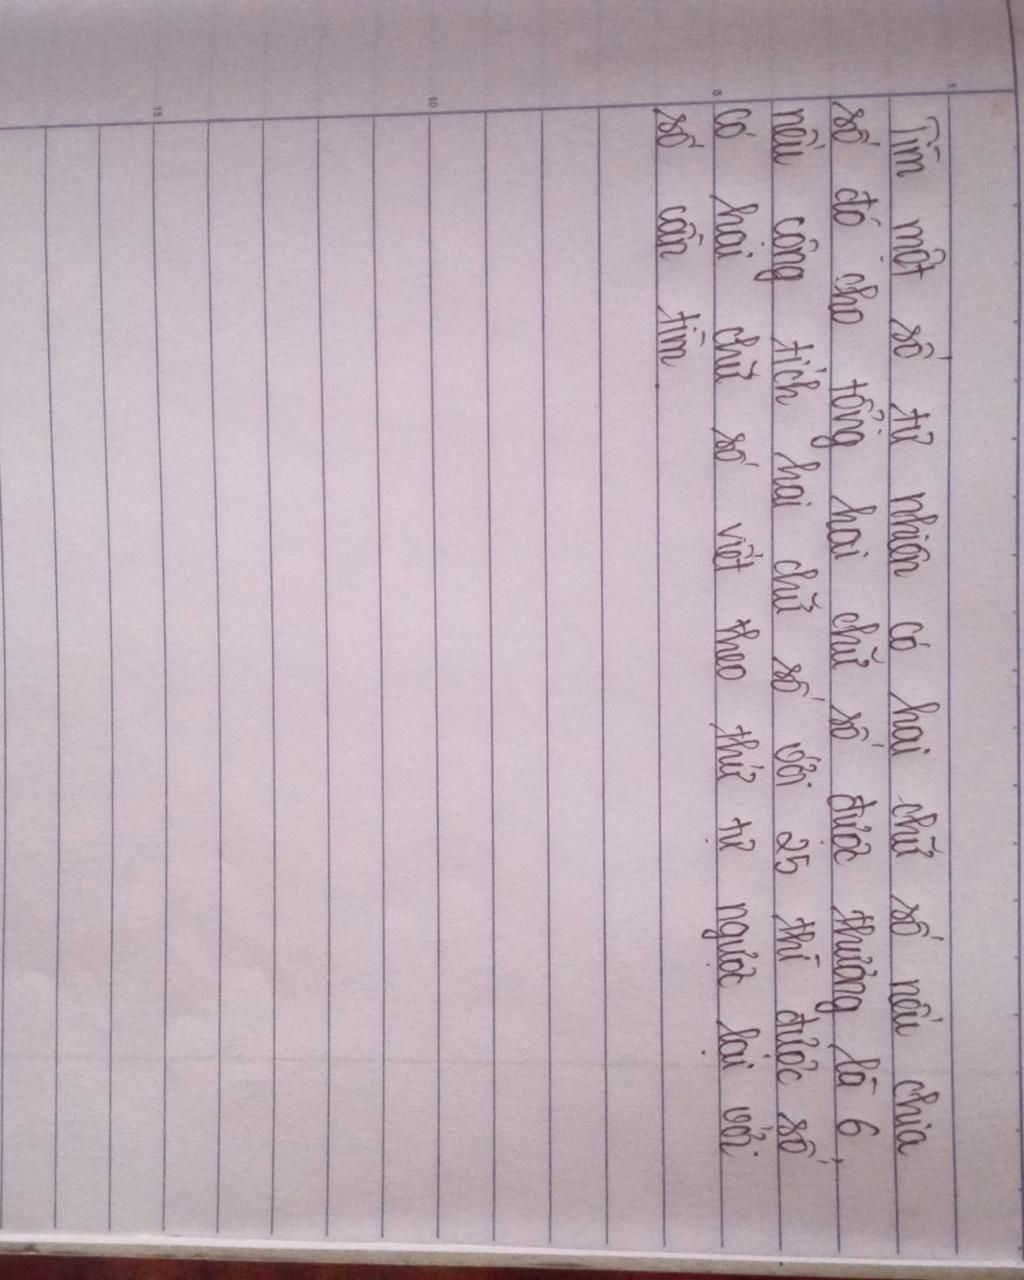 Tìm một số tự nhiên có hai chữ số nếu chia
số đó cho tổng hai chữ số được thương là 6,
nếu cộng tích hai chữ số với 25 thì được số
có hai chữ số viết theo thứ tự ngược lại với
số cần tìm.
1
5
10
15